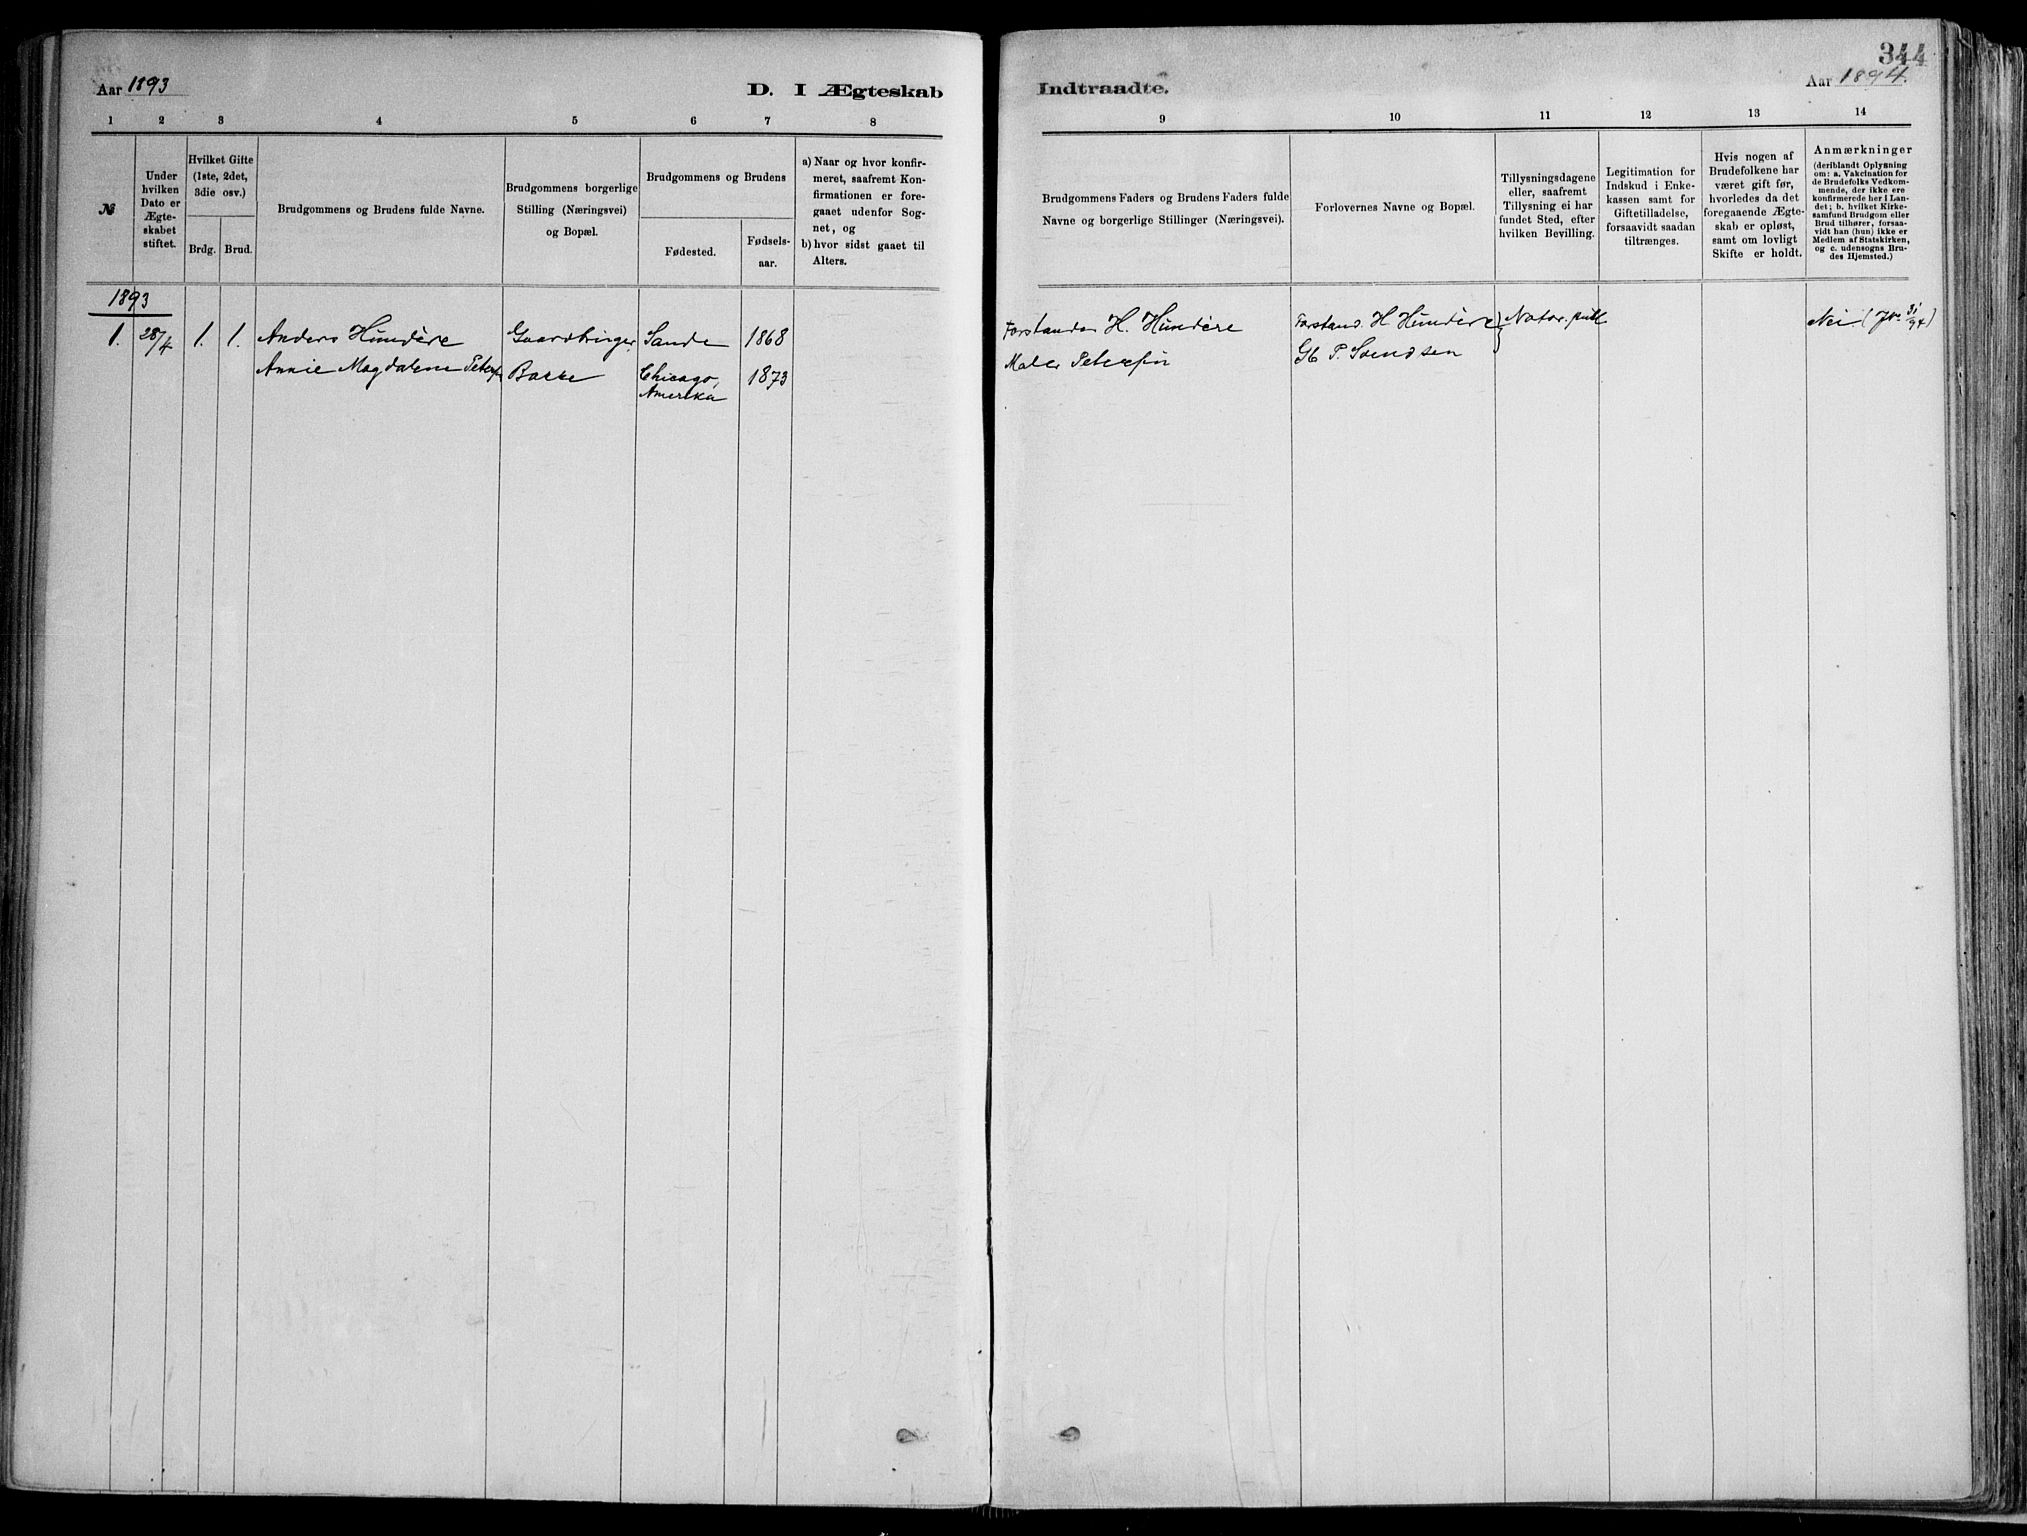 344
Aar 1893
D. I Ægteskab
Indtraadte.
Aar 1894.
1 2 3 4 5 6 7 8
9 10 11 12 13 14
№
Under
hvilken
Dato er
Ægte-
skabet
stiftet.
Hvilket Gifte
(1ste, 2det,
3die osv.)
Brdg. Brud.
Brudgommens og Brudens fulde Navne.
Brudgommens borgerlige
Stilling (Næringsvei)
og Bopæl.
Brudgommens og Brudens
Fødested.
Fødsels-
aar.
a) Naar og hvor konfir-
meret, saafremt Kon-
firmationen er fore-
gaaet udenfor Sog-
net, og
b) hvor sidst gaaet til
Alters.
Brudgommens Faders og Brudens Faders fulde
Navne og borgerlige Stillinger (Næringsvei).
Forlovernes Navne og Bopæl.
Tillysningsdagene
eller, saafremt
Tillysning ei har
fundet Sted, efter
hvilken Bevilling.
Legitimation for
Indskud i Enke-
kassen samt for
Giftetilladelse,
forsaavidt saadan
tiltrænges.
Hvis nogen af
Brudefolkene har
været gift før,
hvorledes da det
foregaaende Ægte-
skab er opløst,
samt om lovligt
Skifte er holdt.
Anmærkninger
(deriblandt Oplysning
om: a. Vakcination for
de Brudefolks Vedkom-
mende, der ikke ere
konfirmerede her i Lan-
det; b. hvilket Kirke-
samfund Brudgom eller
Brud tilhører, forsaa-
vidt han (hun) ikke er
Medlem af Statskirken,
og c. udensogns Bru-
des Hjemsted.)
1893
1. 28/4 1. 1. Anders Hundere Gaardbruger, Sande 1868 Forstander H. Hundere Forstand. H Hundere } Notar. publ Nei
Annie Magdalene Peters Bakke Chicago, 1873 Maler Petersen Gb P. Svendsen
Amerika